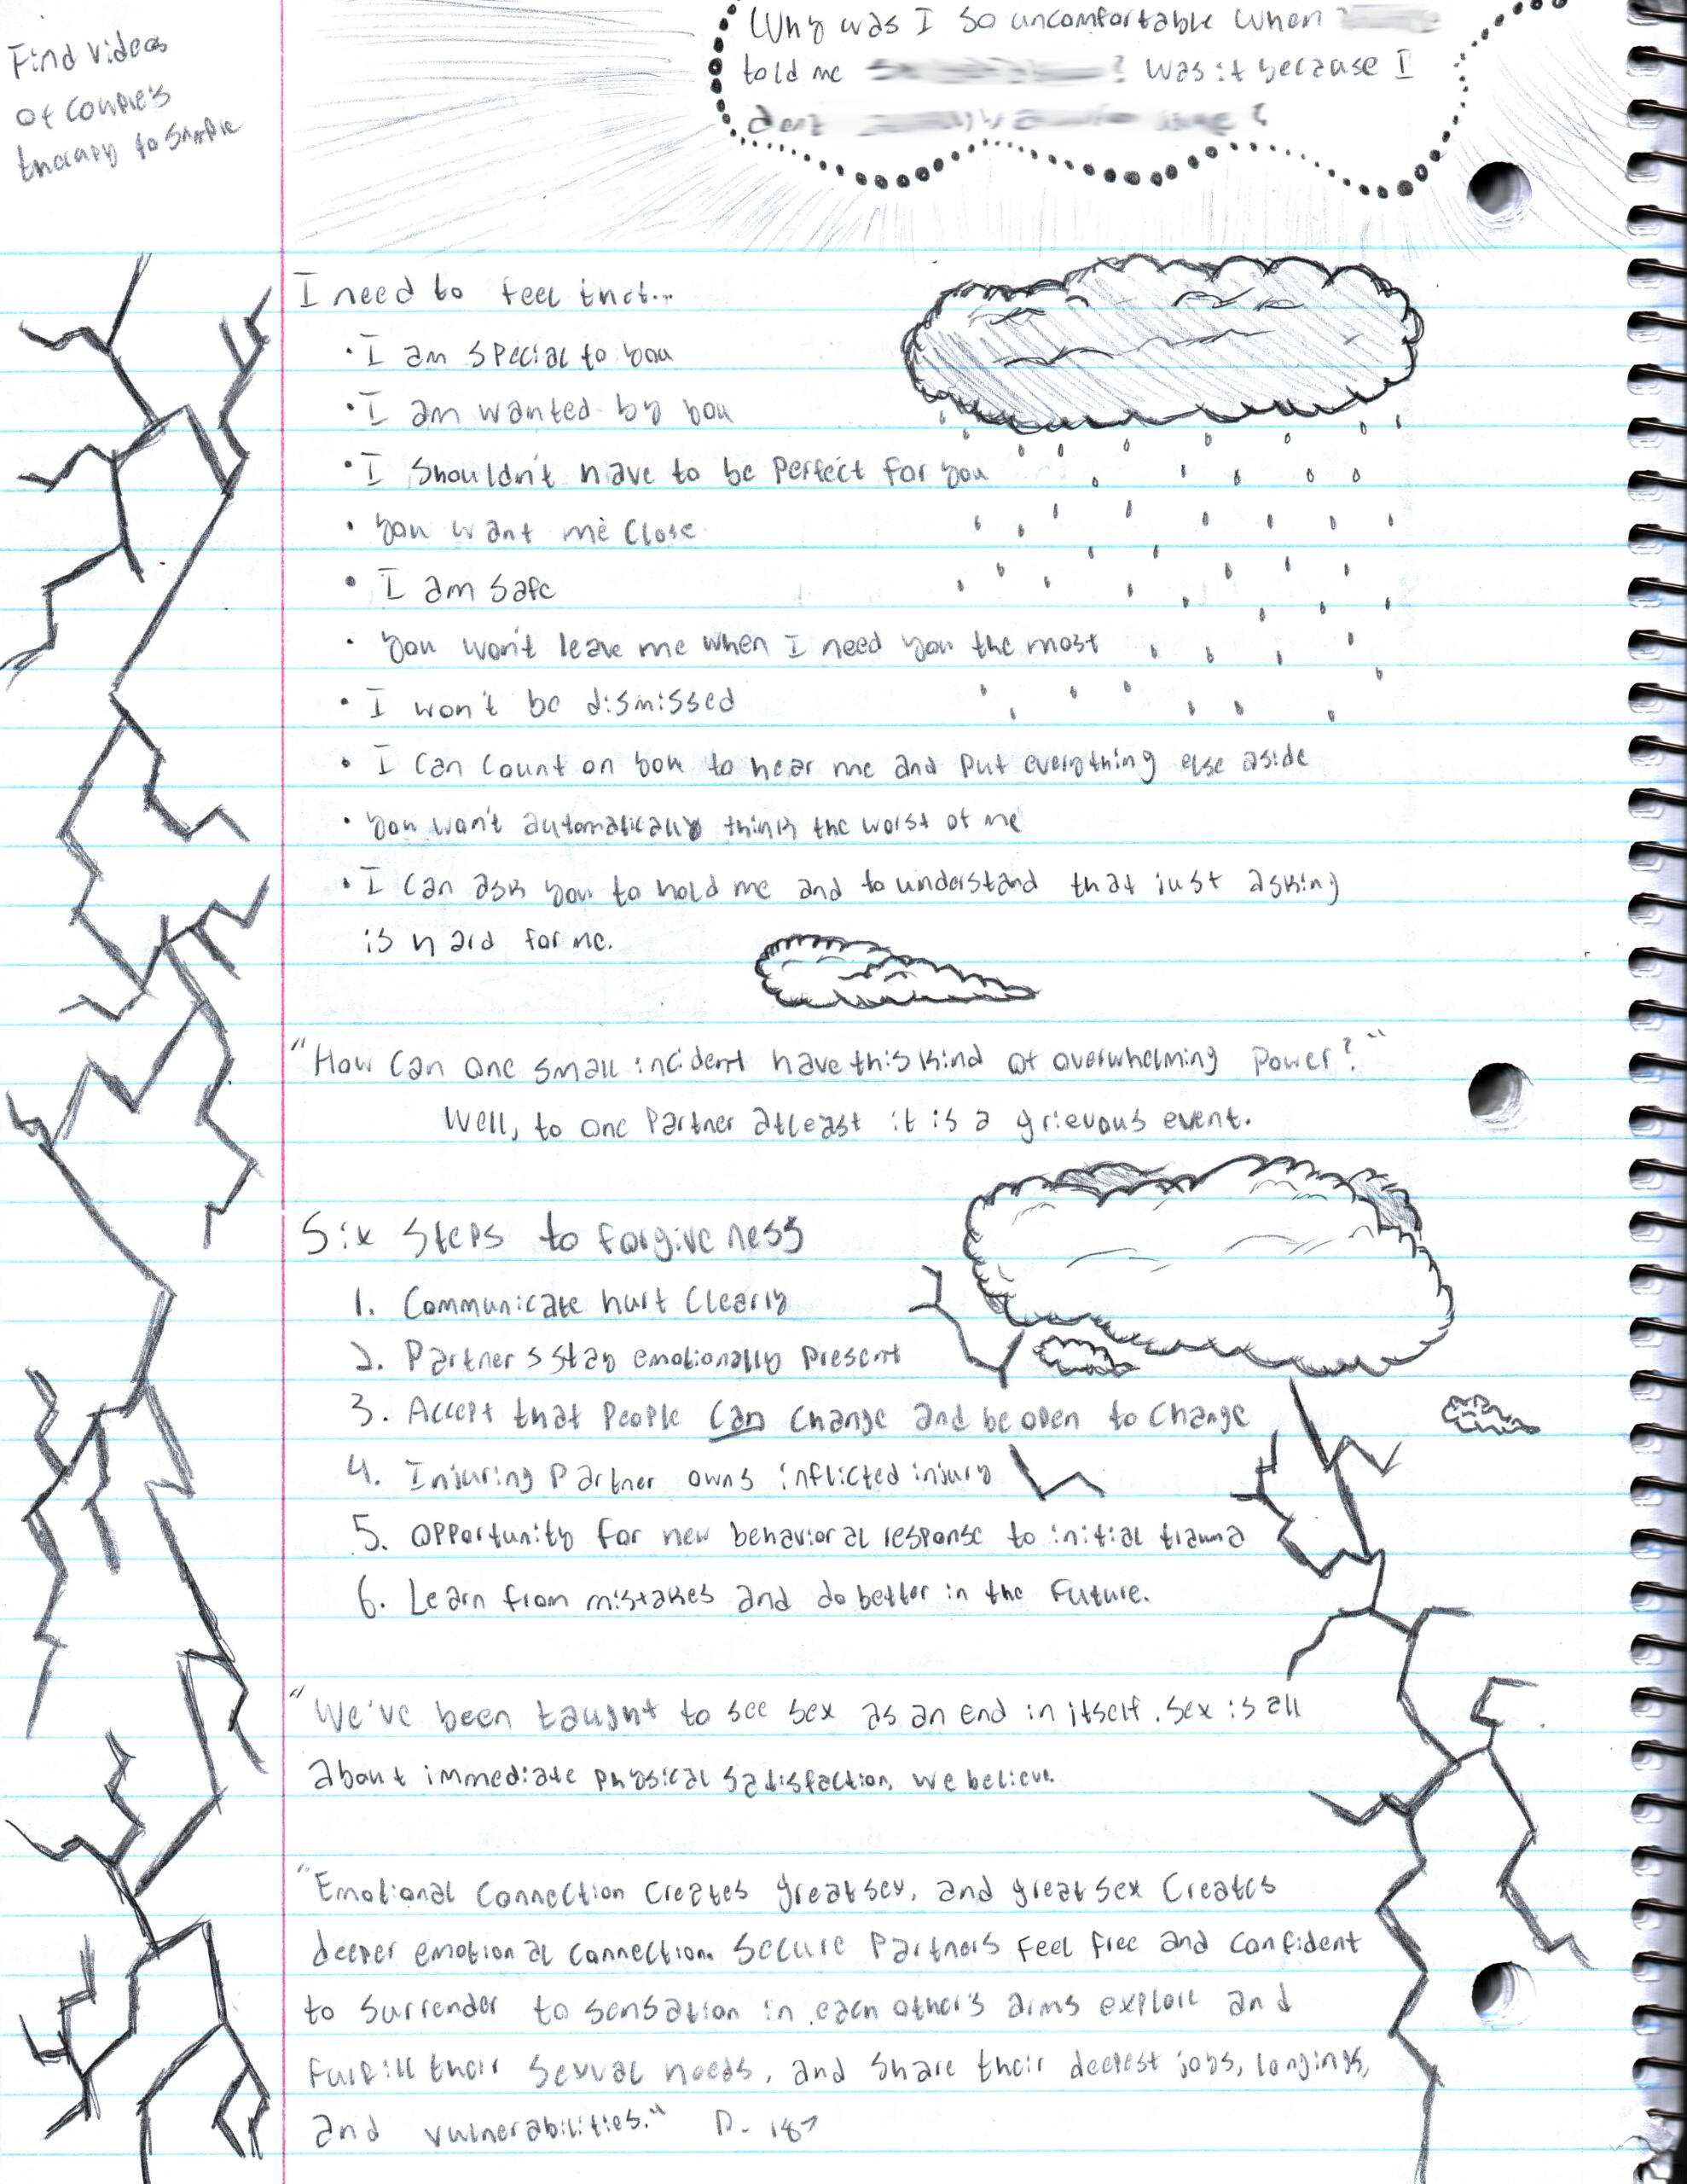 Find videos
of couple's
therapy to sample
Why was I so uncomfortable when
told me ? Was it because I
dont ?
I need to feel that...
• I am special to you
• I am wanted by you
• I shouldn't have to be perfect for you
• You want me close
• I am safe
• You won't leave me when I need you the most
• I won't be dismissed
• I can count on you to hear me and put everything else aside
• You won't automatically think the worst of me
• I can ask you to hold me and to understand that just asking
is hard for me.
"How can one small incident have this kind of overwhelming power?"
Well, to one partner atleast it is a grievous event.
Six Steps to forgiveness
1. Communicate hurt clearly
2. Partners stay emotionally present
3. Accept that people can change and be open to change
4. Injuring partner owns inflicted injury
5. Opportunity for new behavioral response to initial trauma
6. Learn from mistakes and do better in the future.
"We've been taught to see sex as an end in itself. Sex is all
about immediate physical satisfaction, we believe.
"Emotional connection creates great sex, and great sex creates
deeper emotional connection. Secure partners feel free and confident
to surrender to sensation in each other's arms explore and
fulfill their sexual needs, and share their deepest joys, longings,
and vulnerabilities." P. 187